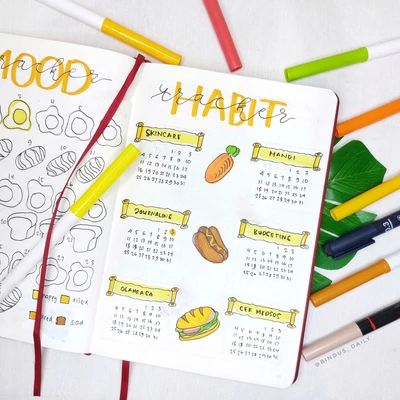 MOOD
tracker
happy
relax
sad
HABIT
tracker
SKINCARE
1 2 3
4 5 6 7 8 9 10
11 12 13 14 15 16 17
18 19 20 21 22 23 24
25 26 27 28 29 30 31
MANDI
1 2 3
4 5 6 7 8 9 10
11 12 13 14 15 16 17
18 19 20 21 22 23 24
25 26 27 28 29 30 31
JOURNALING
1 2 3
4 5 6 7 8 9 10
11 12 13 14 15 16 17
18 19 20 21 22 23 24
25 26 27 28 29 30 31
BUDGETING
1 2 3
4 5 6 7 8 9 10
11 12 13 14 15 16 17
18 19 20 21 22 23 24
25 26 27 28 29 30 31
OLAHRAGA
1 2 3
4 5 6 7 8 9 10
11 12 13 14 15 16 17
18 19 20 21 22 23 24
25 26 27 28 29 30 31
CEK MEDSOS
1 2 3
4 5 6 7 8 9 10
11 12 13 14 15 16 17
18 19 20 21 22 23 24
25 26 27 28 29 30 31
@BINDUS_DAILY